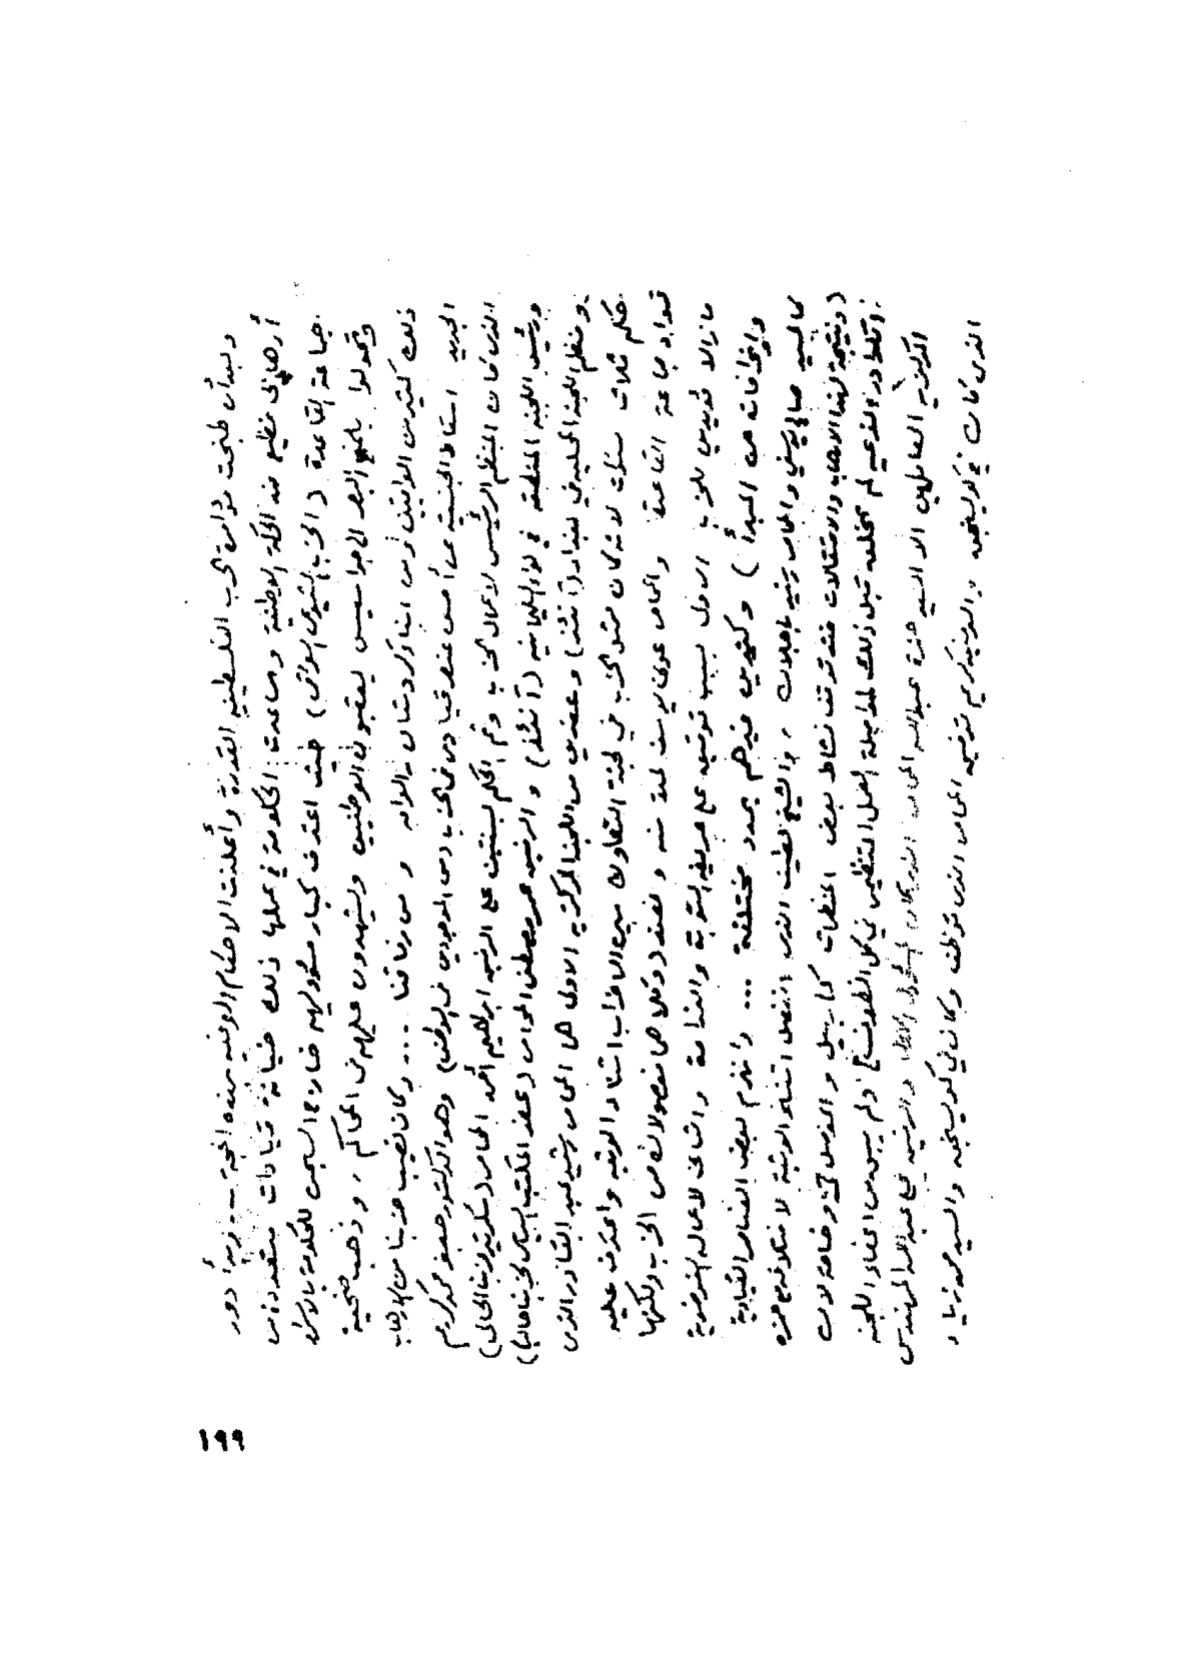 ولبدأن طبخت مؤامرة الحرب الفلسطينية القذرة وأعلنت الاحكام العرفية بهذه الحجة ... وبدأ دور
أرهابي فظيع ضد الحركة الوطنية وساعدت الحكومة في عملها ذلك خيانة قيادات متعددة من
جماعة القاعدة (الحزب الشيوعي العراقي) حيث اعترف كبار مسؤوليهم خارج السجن للحكومة بالاسرار
وتحولوا بلمح البصر الى جواسيس يعقبون الوطنيين ويشهدون عليهم في المحاكم، وذهب ضحية
ذلك كثير من الوطنيين ومن ابناء كردستان البررة ومن رفاقنا ... وكان نصيب حزبنا من الارهاب
الجديد اسقاط الجنسية عن أحسن عنصر قيادي في الحزب وهو الدكتور جعفر محمد كريم
الذي كان المنظم الرئيسي لاعمال الحزب وتم الحكم لسنتين على الرفيق ابراهيم أحمد المحامي (سكرتير حزبنا الحالي)
ورئيس اللجنة المنطقة في لواء السليمانية (آنئذ) والرفيق عمر مصطفى المحامي (عضو المكتب السياسي لحزبنا حاليا)
ومنظم اللجنة المحلية في بغداد (آنئذ) وعضوين من اللجنة المركزية الاولى هما المحامي رشيد عبد القادر الذي
حكم ثلاث سنوات لانه كان ممثل الحزب في لجنة التعاون بين الاحزاب اثناء الوثبة واعترف عليه
قواد جماعة القاعدة والمحامي عوني يوسف لمدة سنة ونصف (وكلاهما مفصولان من الحزب ولكنهما
مازالا قريبين للحزب الاول بسبب توقيعه على عريضة التوبة والندامة والثاني لاعماله الفوضوية
وانحرافاته عن المبدأ) وكثيرين غيرهم بمدد مختلفة ... وأنهزم بعض العناصر القيادية
كالسيد صالح يوسفي والمحامي رشيد باجلان، والشيخ لطيف الذي انفصل اثناء الوثبة لاختلافه مع حمزه
(ونتيجة لهذا الارهاب والاعتقالات فقد توقف نشاط بعض المنظمات كأربيل والموصل وخانقين وخاصة لان
الكادر والوعي لم تخلق قبل ذلك لمواصلة العمل التنظيمي في كل الظروف) ولم يبق من اعضاء اللجنة
المركزية العاملين الا السيد حمزة عبدالله المحامي والرفيق علي عبدالله المهندس
الذي كان في كويسنجق والرفيق كريم توفيق المحامي الذي توظف وكان في كويسنجق والسيد محمد زياد
١٩٩